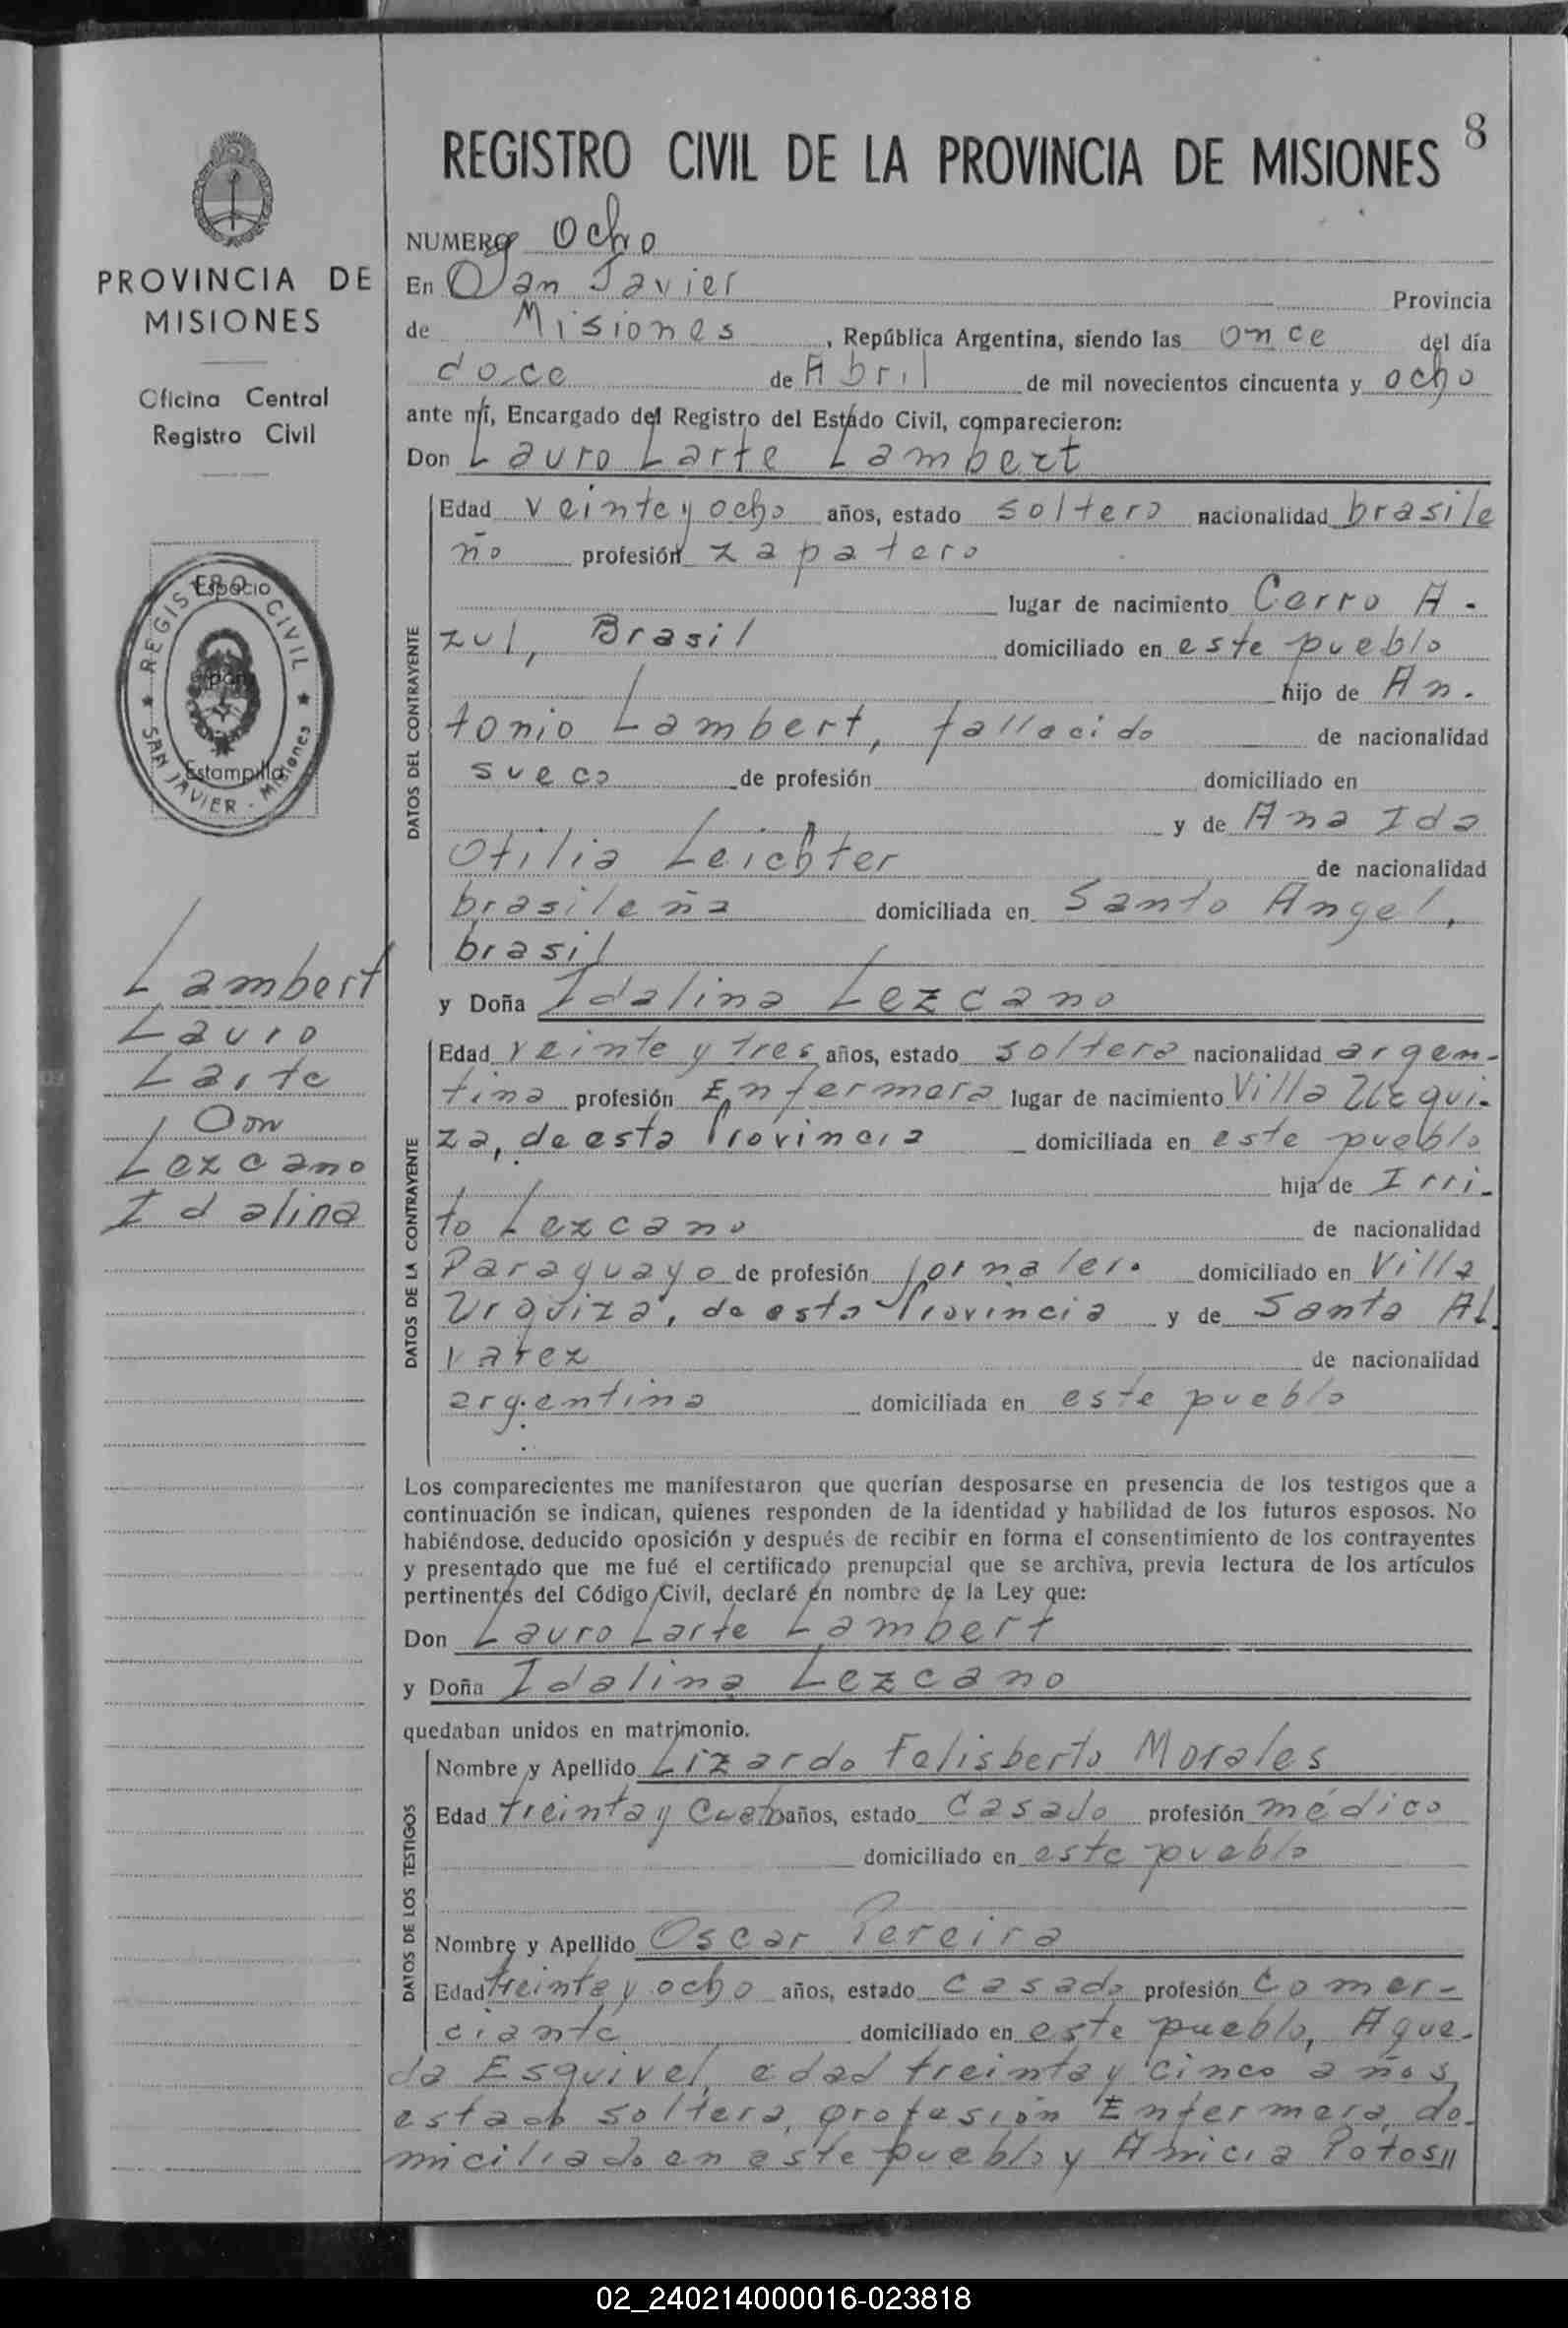 8
REGISTRO CIVIL DE LA PROVINCIA DE MISIONES
PROVINCIA DE
MISIONES
Oficina Central
Registro Civil
Espacio
para
Estampilla
REGISTRO CIVIL
SAN JAVIER - Misiones
Lambert
Lauro
Larte
Con
Lezcano
Idalina
NUMERO Ocho
En San Javier Provincia
de Misiones, República Argentina, siendo las once del día
doce de Abril de mil novecientos cincuenta y ocho
ante mí, Encargado del Registro del Estado Civil, comparecieron:
Don Lauro Larte Lambert
DATOS DEL CONTRAYENTE
Edad veinte y ocho años, estado soltero nacionalidad brasile
ño profesión zapatero
lugar de nacimiento Cerro A-
zul, Brasil domiciliado en este pueblo
hijo de An-
tonio Lambert, fallecido de nacionalidad
sueco de profesión domiciliado en
y de Ana Ida
Otilia Leichter de nacionalidad
brasileña domiciliada en Santo Angel,
brasil
y Doña Idalina Lezcano
DATOS DE LA CONTRAYENTE
Edad veinte y tres años, estado soltera nacionalidad argen-
tina profesión Enfermera lugar de nacimiento Villa Urqui-
za, de esta Provincia domiciliada en este pueblo
hija de Irri-
to Lezcano de nacionalidad
Paraguayo de profesión jornalero domiciliado en Villa
Urquiza, de esta Provincia y de Santa Al
varez de nacionalidad
argentina domiciliada en este pueblo
Los comparecientes me manifestaron que querían desposarse en presencia de los testigos que a
continuación se indican, quienes responden de la identidad y habilidad de los futuros esposos. No
habiéndose deducido oposición y después de recibir en forma el consentimiento de los contrayentes
y presentado que me fué el certificado prenupcial que se archiva, previa lectura de los artículos
pertinentes del Código Civil, declaré en nombre de la Ley que:
Don Lauro Larte Lambert
y Doña Idalina Lezcano
quedaban unidos en matrimonio.
DATOS DE LOS TESTIGOS
Nombre y Apellido Lizardo Felisberto Morales
Edad treinta y cuatro años, estado casado profesión médico
domiciliado en este pueblo
Nombre y Apellido Oscar Pereira
Edad treinta y ocho años, estado casado profesión comer-
ciante domiciliado en este pueblo, Ague-
da Esquivel, edad treinta y cinco años
estado soltera, profesión Enfermera, do-
miciliado en este pueblo y Amicia Potosu
02_240214000016-023818